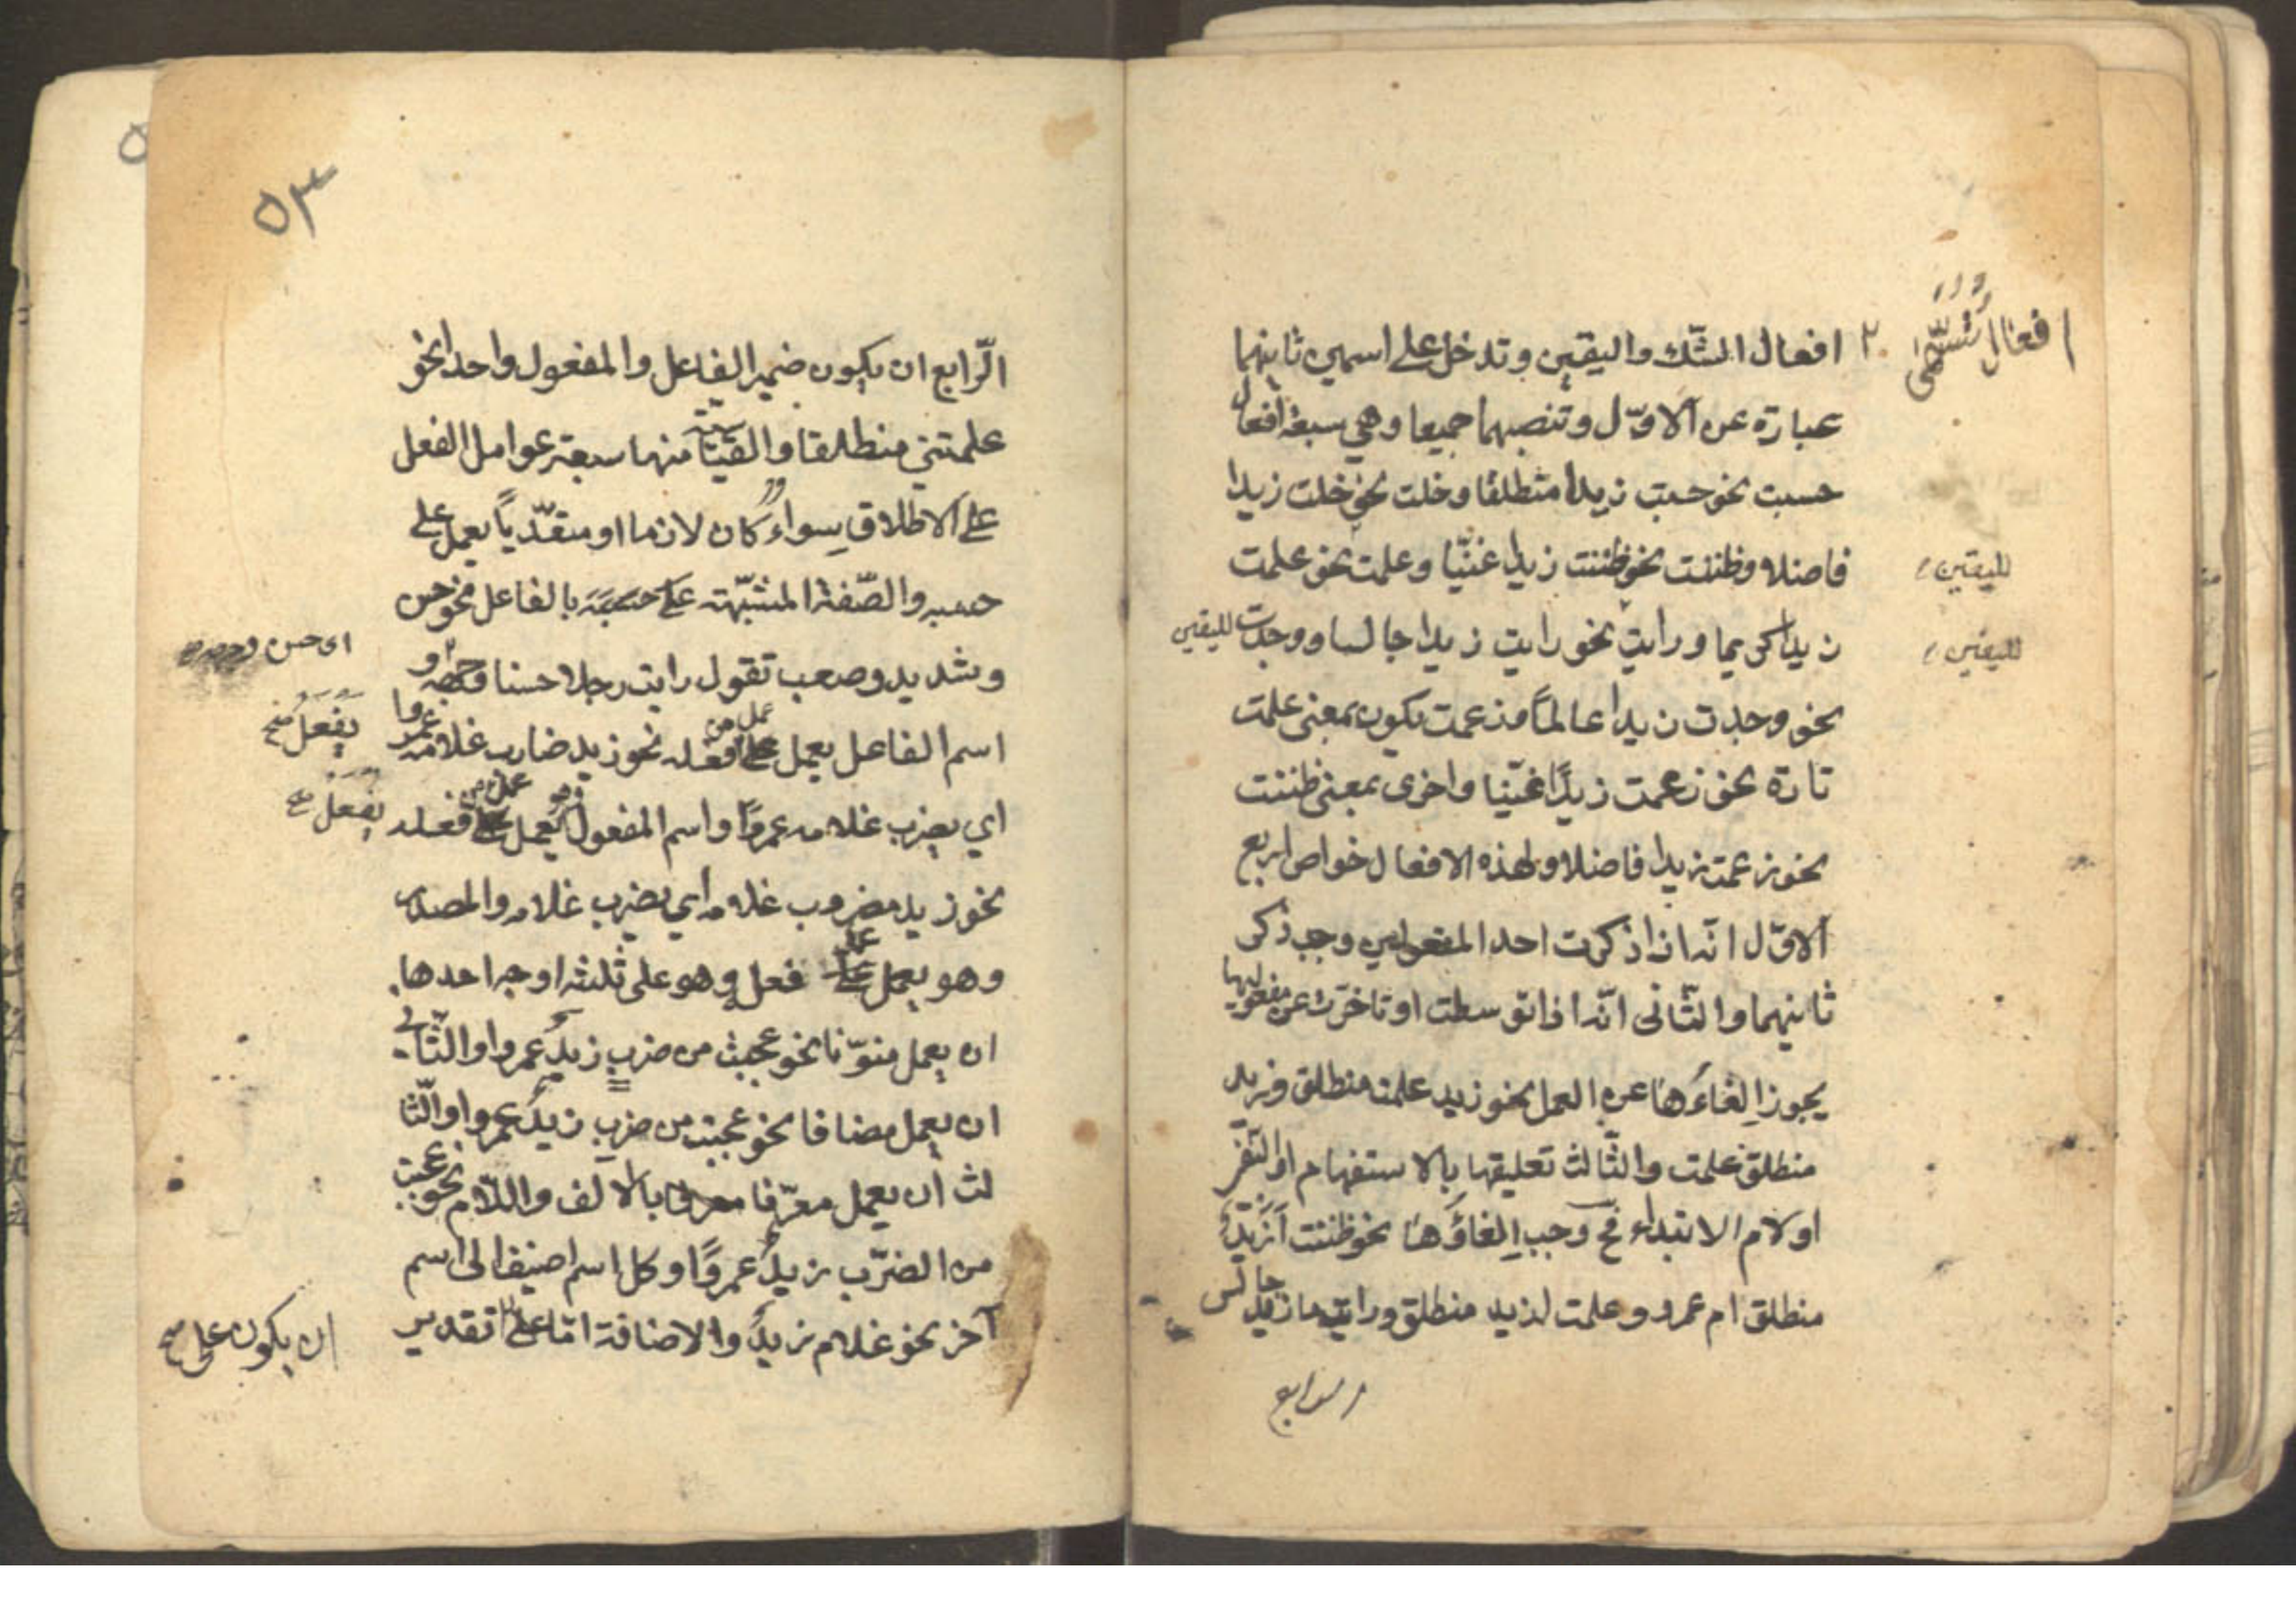 افعال تسمى
افعال الشّك واليقين وتدخل على اسمين ثانيهما
عبارة عن الاوّل وتنصبهما جميعا وهي سبعة افعال
حسبت نحو حسبت زيدا منطلقا وخلت نحو خلت زيدا
فاضلا وظننت نحو ظننت زيدا غنيّا وعلمت نحو علمت
لليقين
زيدا كريما ورايت نحو رايت زيدا جالسا ووجدت لليقين
لليقين
نحو وجدت زيدا عالماً وزعمت يكون بمعنى علمت
تارة نحو زعمت زيدًا غنيّا واخرى بمعنى ظننت
نحو زعمت زيدا فاضلا ولهذه الافعال خواص اربع
الاوّل انّه اذا ذكرت احد المفعولين وجب ذكر
ثانيهما والثّانى انّه اذا توسطت او تاخّرت عن مفعوليها
يجوز اِلغاءَها عن العمل نحو زيد علمت منطلق وزيد
منطلق علمت والثّالث تعليقها بالاستفهام او النّفى
او لام الابتداء فح وجب اِلغاؤها نحو ظننت اَزَيْدٌ
منطلق ام عمرو وعلمت لزيد منطلق ورايت ما زيد جالس
الرابع
٥٣
الرّابع ان يكون ضمير الفاعل والمفعول واحدا نحو
علمتني منطلقا والقياسية منها سبعة عوامل الفعل
على الاطلاق سواء كان لازما او متعدّياً يعمل على
حسبه والصّفة المشبّهة بالفاعل نحو حسن
وشديد وصعب تقول رايت رجلا حسنا وجهه و
اى حسن وجهه
اسم الفاعل يعمل عمل فعله نحو زيد ضارب غلامه عمروا
يَفْعَلُ صح
اي يضرب غلامه عمروًا واسم المفعول يعمل عمل فعله
يُفْعَلُ صح
نحو زيد مضروب غلامه أي يضرب غلامه والمصدر
وهو يعمل عمل فعل وهو على ثلثة اوجه احدها
ان يعمل منوّنا نحو عجبت من ضربٍ زيدٌ عمروا والثّاني
ان يعمل مضافا نحو عجبت من ضرب زيدٍ عمروا والثّا
لث ان يعمل معرّفا بالالف واللّام نحو عجبت
من الضّرب زيدٌ عمروًا وكل اسم اضيف الى اسم
آخر نحو غلام زيدٍ والاضافة امّا على تقدير
ان يكون على صح